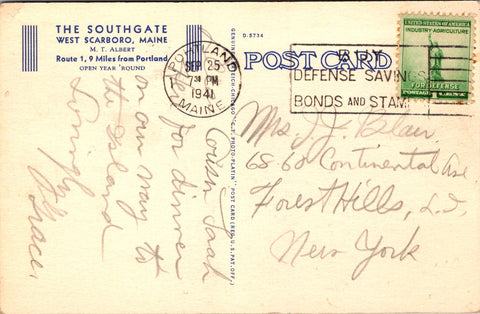 THE SOUTHGATE
WEST SCARBORO, MAINE
M. T. ALBERT
Route 1, 9 Miles from Portland
OPEN YEAR 'ROUND
D-5734
POST CARD
PORTLAND
SEP 25
7 PM
1941
MAINE
BUY
DEFENSE SAVINGS
BONDS AND STAMPS
UNITED STATES OF AMERICA
INDUSTRY AGRICULTURE
FOR DEFENSE
GENUINE CURTEICH-CHICAGO "C.T. PHOTO-PLATIN" POST CARD (REG. U.S. PAT. OFF.)
Cousin Sarah
for dinner
on our way to
the Island
Lovingly,
Grace.
Mrs. J. J. Blair
68-60 Continental Ave
Forest Hills, L.I.
New York